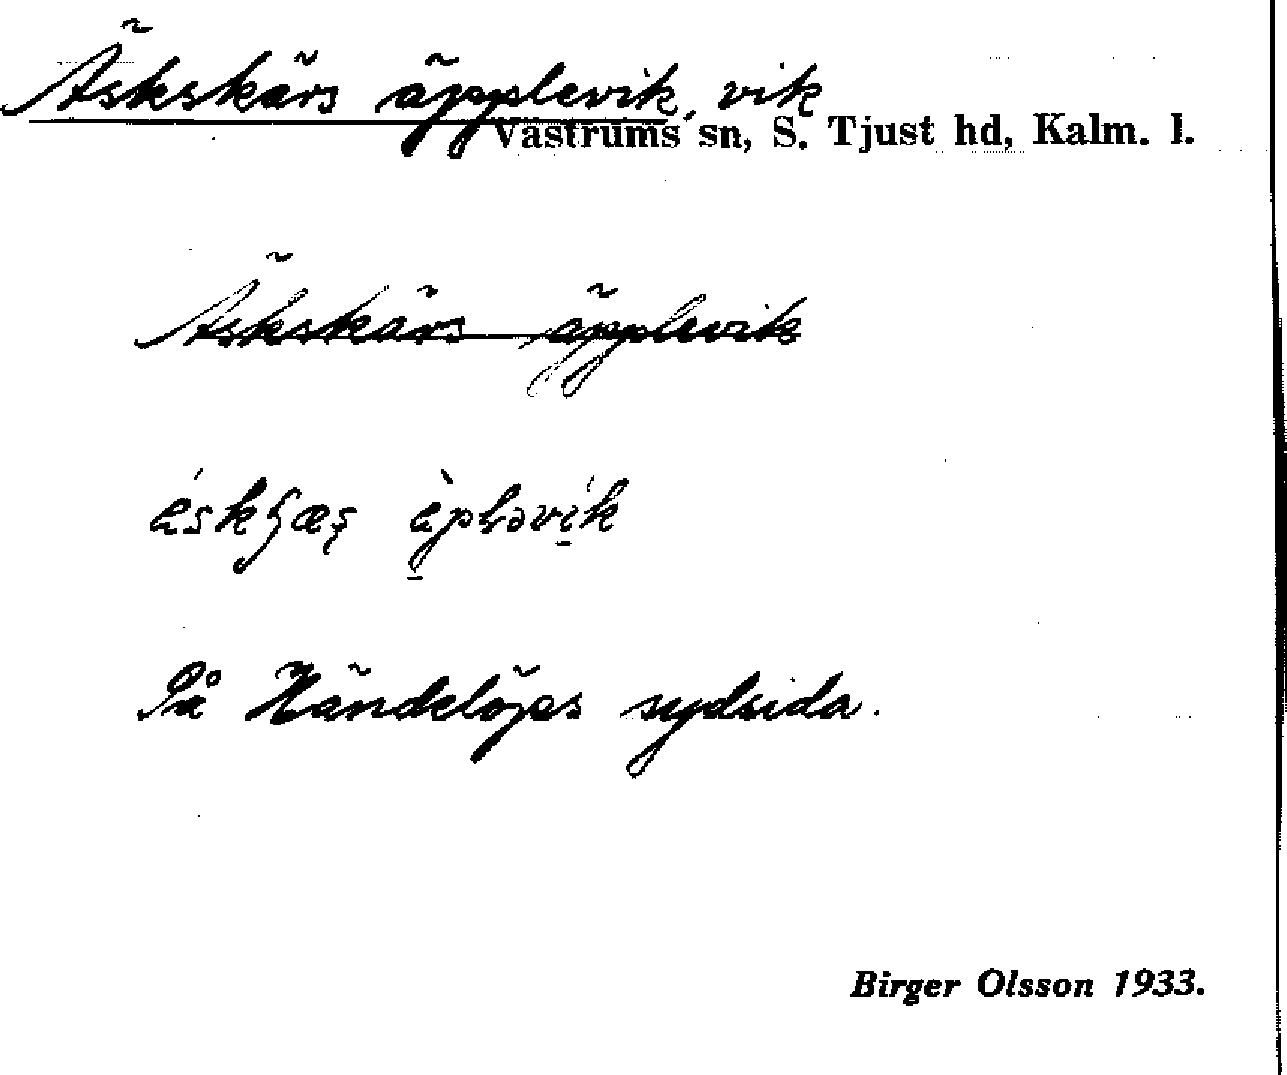 Äskskärs äpplevik, vik
Västrums sn, S. Tjust hd, Kalm. l.
Äskskärs äpplevik
På Händelöps sydsida.
Birger Olsson 1933.